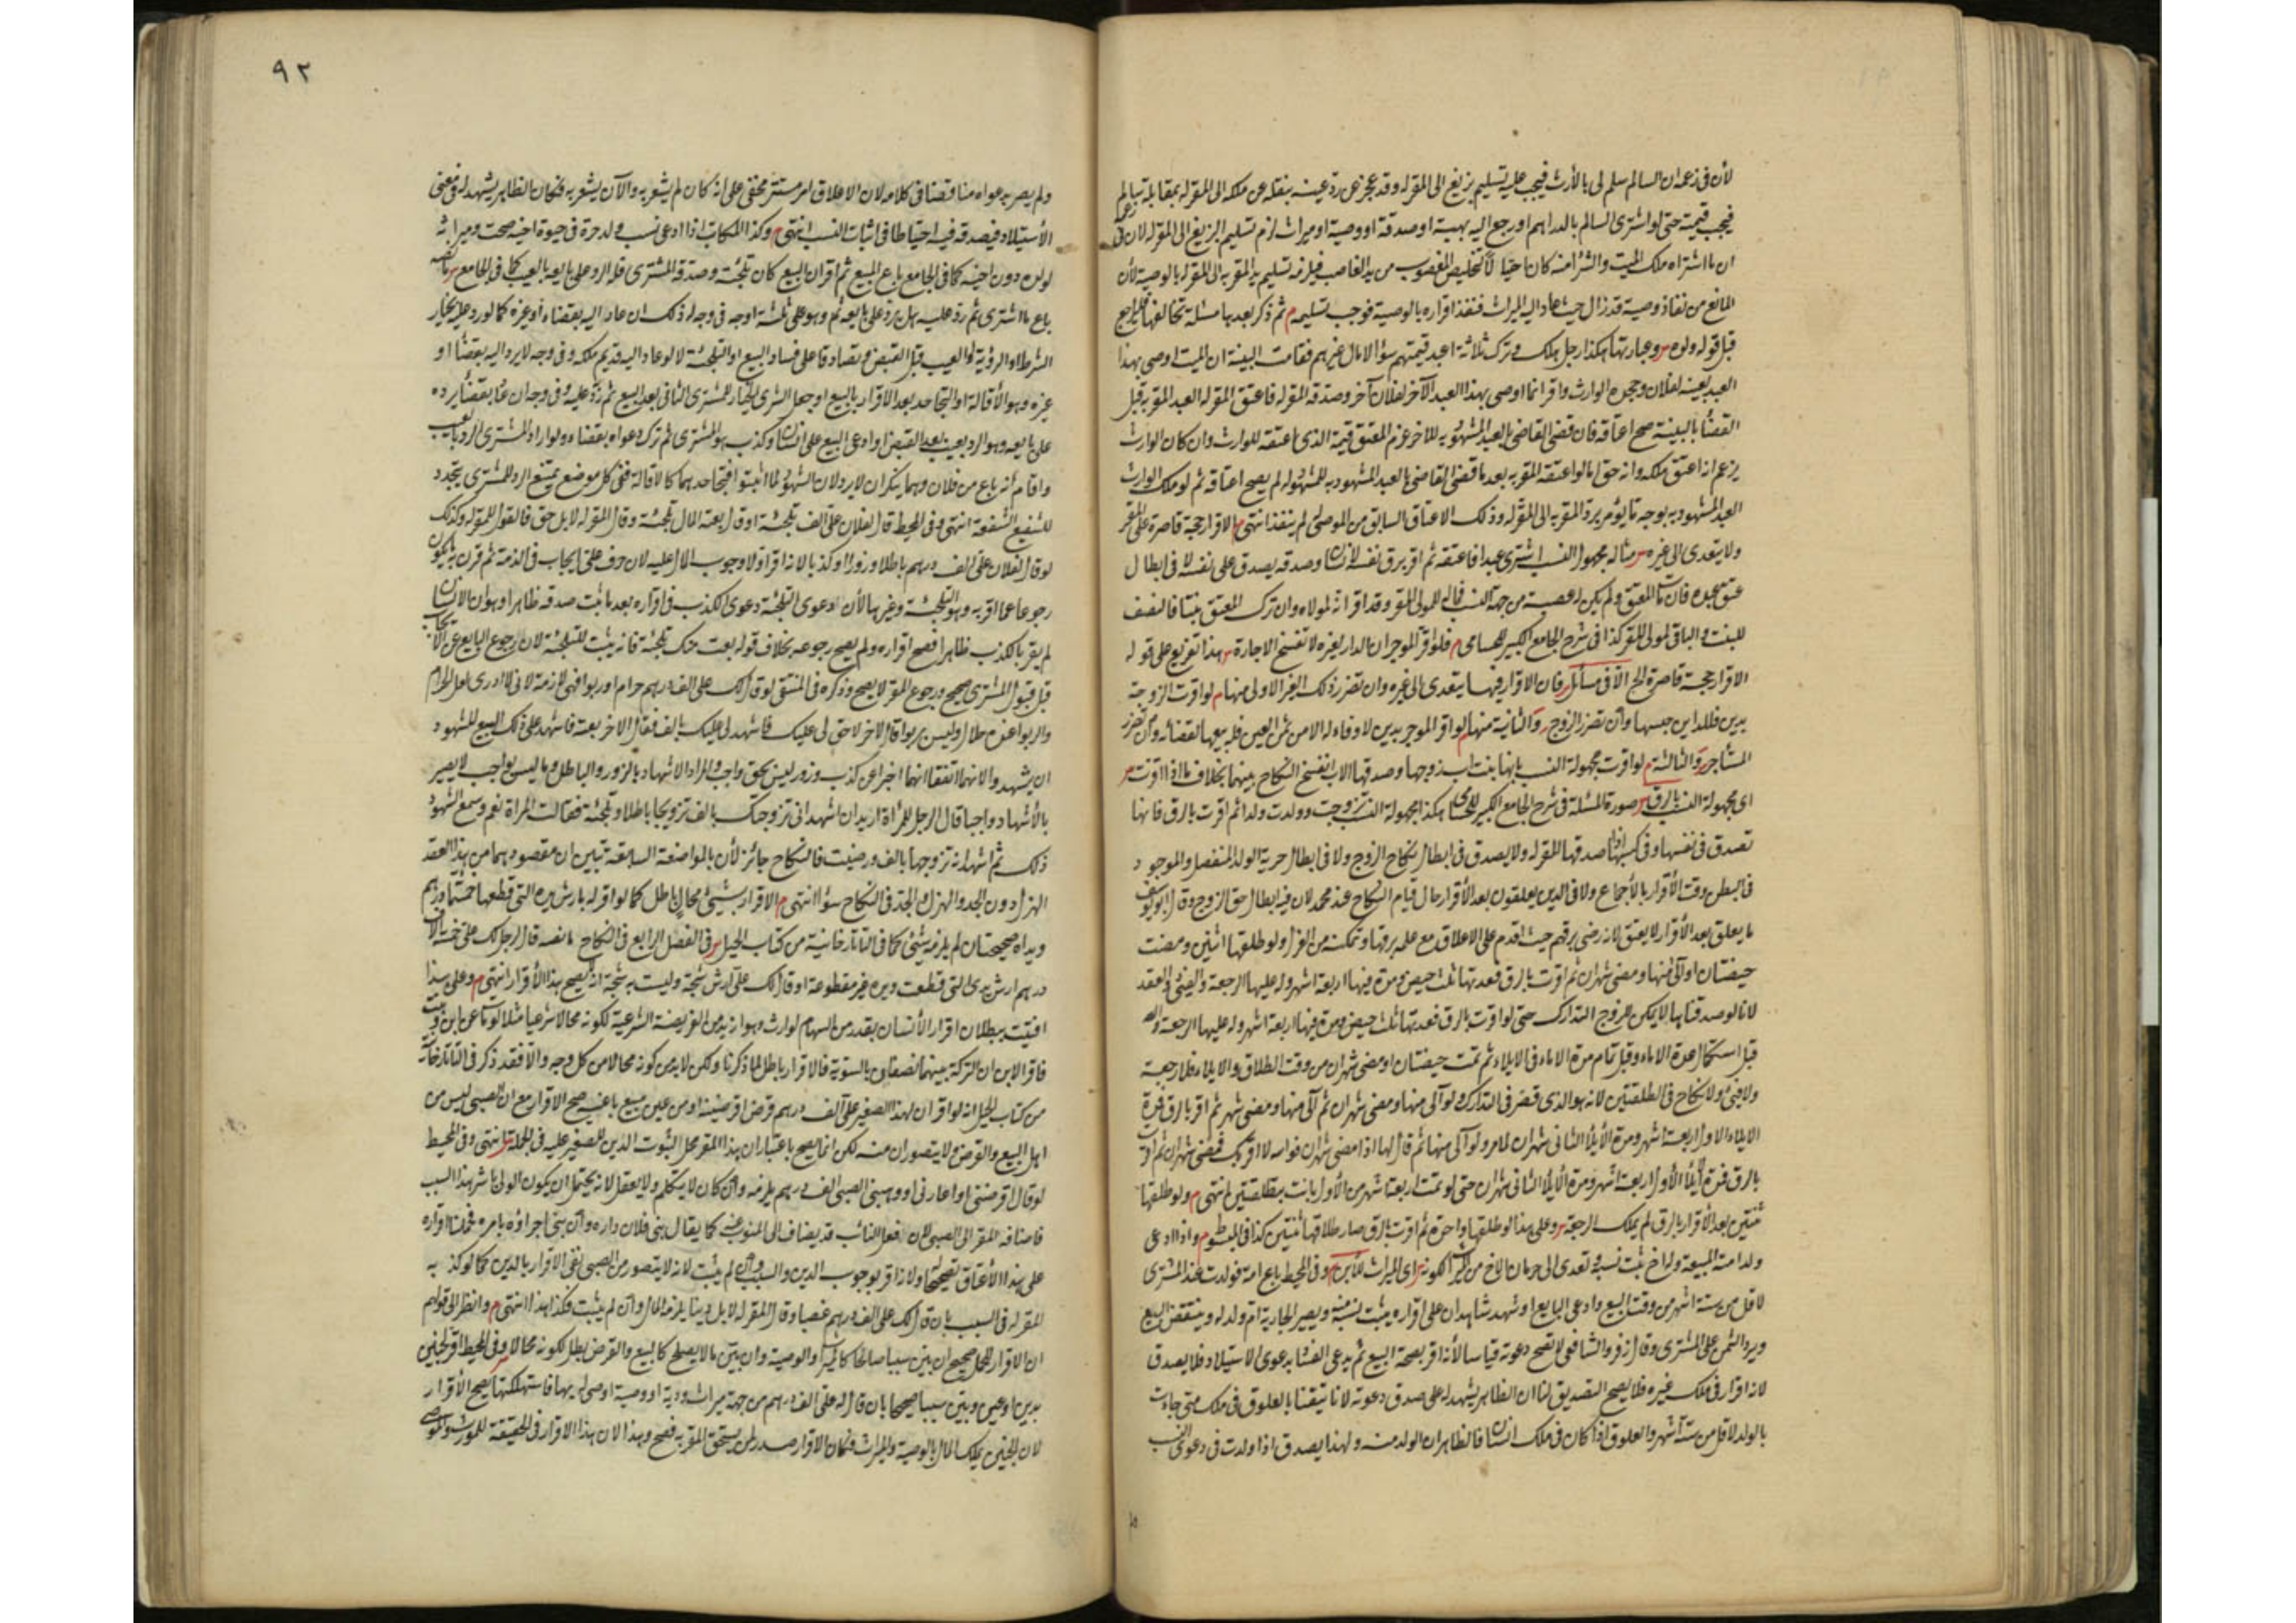 لأن فى زعمه ان السالم سلم لى بالأرث فيجب عليه تسليم بزيغ الى المقرله وقد عجز عن رد عينه بنقله عن ملكه الى المقرله بمقابلة سالم
فيجب قيمته حتى لو اشترى السالم بالدراهم او رجع اليه بهبة او صدقة او وصية او ميراث لزم تسليم البزيغ الى المقرله لان فى زعمه
ان ما اشتراه ملك الميت والشرا منه كان احتيالا لتخليص المغصوب من يد الغاصب فيلزمه تسليم المقربه الى المقرله بالوصية لأن
المانع من نفاذ وصية قد زال حيث عاد اليه الميراث فنفذ اقراره بالوصية فوجب تسليمه م ثم ذكر بعدها مسئلة تخالفها فليراجع
قبل قوله ولوه س وعبارتها هكذا رجل هلك وترك ثلاثة اعبد قيمتهم سوا لا مال غيرهم فقامت البينة ان الميت اوصى بهذا
العبد بعينه لفلان وجحده الوارث واقر انما اوصى بهذا العبد الآخر لفلان آخر وصدقه المقرله فاعتق المقرله العبد المقربه قبل
القضا بالبينة صح اعتاقه فان قضى القاضى بالعبد المشهود به للآخر غرم المعتق قيمة الذى اعتقه للوارث وان كان الوارث
يزعم انه اعتق ملكه وانه حق اما لو اعتقه المقربه بعد ما قضى القاضى بالعبد المشهود به للمشهود له لم يصح اعتاقه ثم لو ملك الوارث
العبد المشهود به بوجه ما يؤمر برد المقربه الى المقرله وذلك الاعتاق السابق من الموصى لم ينفذ انتهى م الاقرار حجة قاصرة على المقر
ولا يتعدى الى غيره س مثاله مجهول النسب اشترى عبدا فاعتقه ثم اقر برق نفسه لانسان وصدقه يصدق على نفسه لا فى ابطال
عتق عبده فان مات المعتق ولم يكن له عصبة من جهة النسب فماله للمولى المقر وقد اقر انه لمولاه وان ترك المعتق بنتا فالنصف
للبنت والباقى لمولى المقر كذا فى شرح الجامع الكبير للحسامى م فلو اقر الموجر ان الدار لغيره لا تنفسخ الاجارة س هذا تفريع على قوله
الاقرار حجة قاصرة الخ الا فى مسائل س فان الاقرار فيها يتعدى الى غيره وان تضرر ذلك الغير الاولى منها م لو اقرت الزوجة
بدين فللداين حبسها وان تضرر الزوج س والثانية منها م لو اقر الموجر بدين لا وفاء له الا من ثمن العين فله بيعها لقضائه وان تضرر
المستأجر س والثالثة م لو اقرت مجهولة النسب بانها بنت اب زوجها وصدقها الاب انفسخ النكاح بينهما بخلاف ما اذا اقرت س
اى مجهولة النسب بالرق س صورة المسئلة فى شرح الجامع الكبير هكذا مجهولة النسب تزوجت وولدت ولدا ثم اقرت بالرق فانها
تصدق فى نفسها وفى كسبها اذا صدقها المقرله ولا يصدق فى ابطال نكاح الزوج ولا فى ابطال حرية الولد المنفصل والموجود
فى البطن وقت الأقرار بالأجماع ولا فى الذين يعلقون بعد الأقرار حال قيام النكاح عند محمد لان فيه ابطال حق الزوج وقال ابو يوسف
ما يعلق بعد الأقرار لا يعتق لانه رضى برقهم حيث اقدم على الاعلاق مع علمه برقها وتمكنه من العزل ولو طلقها اثنين ومضت
حيضتان او آلى منها ومضى شهران ثم اقرت بالرق فعدتها ثلث حيض ومدة فيها اربعة اشهر وله عليها الرجعة والفئ والعقد
لانا لو صدقناها لا يمكن للزوج التدارك حتى لو اقرت بالرق فعدتها ثلث حيض ومدة فيها اربعة اشهر وله عليها الرجعة
قبل استكمال عدة الاماء وقبل تمام مدة الاماء فى الايلاء ثم تمت حيضتان او مضى شهران من وقت الطلاق والايلاء فلا رجعة
ولا فئ ولا نكاح فى الطلقتين لانه هو الذى قصر فى التدارك ولو آلى منها ومضى شهران ثم آلى منها ومضى شهر ثم اقر بالرق فمدة
الايلاء الاول اربعة اشهر ومدة الأيلا الثانى شهران لما مر ولو آلى منها ثم قال لها اذا مضى شهران فوالله لا اقربك فمضى شهران ثم اقرت
بالرق فمدة ايلا الأول اربعة اشهر ومدة الأيلا الثانى شهران حتى لو تمت اربعة اشهر من الأول بانت بطلقتين انتهى م ولو طلقها
ثنتين بعد الأقرار بالرق لم يملك الرجعة س وعلى هذا لو طلقها واحدة ثم اقرت بالرق صار طلاقها ثنتين كذا فى م واذا ادعى
ولد امته المبيعة وله اخ يثبت نسبه وتعدى الى حرمان الاخ من الميراث لكونه س اى الميراث للأبن س وفى المحيط باع امة فولدت عند المشترى
لاقل من ستة اشهر من وقت البيع وادعى البايع او شهد شاهدان على اقراره يثبت نسبه ويصير الجارية ام ولد له وينتقض البيع
ويرد الثمن على المشترى وقال زفر والشافعى لا تصح دعوته قياسا لأنه اقر بصحة البيع ثم يدعى الفسا بدعوى الاستيلاد فلا يصدق
لانه اقرار فى ملك غيره فلا يصح التصديق لنا ان الظاهر يشهد له على صدق دعوته لانا تيقنا بالعلوق فى ملكه متى جاءت
بالولد لاقل من ستة اشهر والعلوق اذا كان فى ملك انسان فالظاهر ان الولد منه ولهذا يصدق اذا ولدت فى دعوى النسب
٩٢
ولم يصر بدعواه مناقضا فى كلامه لان الاعلاق امر مستتر مخفى على انه كان لم يشعر به والآن يشعر به فكان الظاهر يشهد له فى معنى
الأستيلاد فيصدقه فيه احتياطا فى اثبات النسب انتهى م وكذا المكاتب اذا ادعى نسب ولد حرة فى حيوة اخيه صحت وميراثه
لولده دون اخيه كما فى الجامع باع المبيع ثم اقر ان البيع كان تلجئة وصدقه المشترى فله الرد على بايعه بالعيب كما فى الجامع س نصه
باع ما اشترى ثم رد عليه هل يرد على بايعه ثم وهو على ثلثة اوجه فى وجه له ذلك ان عاد اليه بقضاء او غيره كما لو رد عليه بخيار
الشرط او الرؤية او العيب قبل القبض وتصادقا على فساد البيع او التلجئة لانه لو عاد اليه قديم ملكه وفى وجه لا يرد اليه بقضا او
غيره وهو الأقالة او التجاحد بعد الاقرار بالبيع او جعل المشترى الخيار للمشترى الثانى بعد البيع ثم رد عليه وفى وجه ان عاد بقضا يرده
على بايعه وهو الرد بعيب بعد القبض او ادعى البيع على انسان وكذب هو المشترى ثم ترك دعواه بقضاء ولو اراد المشترى الرد بالعيب
واقام انه باع من فلان وهما ينكران لا يرد لان الشهود لما اثبتوا فتجاحدهما كالاقالة ففى كل موضع يمتنع الرد للمشترى يتجدد
للشفيع الشفعة انتهى وفى المحيط قال لفلان على الف تلجئة او قال بعته المال تلجئة وقال المقرله لا بل حق فالقول للمقرله وكذلك
لو قال لفلان على الف درهم باطلا وزورا او كذبا لانه اقر اولا وجوب المال عليه لان حرف على ايجاب فى الذمة ثم قرن به ما يكون
رجوعا عما اقر به وهو التلجئة وغيرها لأن دعوى التلجئة دعوى الكذب فى اقراره بعد ما ثبت صدقه ظاهرا وهو ان الانسان
لم يقر بالكذب ظاهرا فصح اقراره ولم يصح رجوعه بخلاف قوله بعت منك تلجئة فانه يثبت للتلجئة لان رجوع البايع عن الايجاب
قبل قبول المشترى صحيح ورجوع المقر لا يصح وذكره فى المنتقى لو قال لك على الف درهم حرام او ربوا فهى لازمة لانى لا ادرى لعل الحرام
والربوا عنده حلال وليس بربوا قال لآخر لا حق لى عليك فاشهد لى عليك بالف فقال الآخر بعته فاشهد على ذلك البيع للشهود
ان يشهدوا لانهما اتفقا انهما اخبرا عن كذب وزور ليس بحق واجب والمراد الاشهاد بالزور والباطل وما ليس بواجب لا يصير
بالأشهاد واجبا قال الرجل للمرأة اريد ان اشهد انى تزوجتك بالف تزويجا باطلا وتلجئة فقالت المراة نعم وسمع الشهود
ذلك ثم اشهد انه تزوجها بالف ورضيت فالنكاح جائز لأن بالمواضعة السابقة تبين ان مقصودهما من هذا العقد
الهزل دون الجد والهزل والجد فى النكاح سوا انتهى م الاقرار بشيئ محال باطل كما لو اقر له بارش يده التى قطعها خمسمأة درهم
ويداه صحيحتان لم يلزمه شئ كما فى التاتارخانية من كتاب الحيل س فى الفصل الرابع فى النكاح ما نصه قال الرجل لك على خمسة الاف
درهم ارش يدى التى قطعت ويده غير مقطوعة او قال لك على ارش شجة وليست به شجة انه لا يصح هذا الأقرار انتهى م وعلى هذا
افتيت ببطلان اقرار الأنسان بقدر من السهام لوارث وهو ازيد من الفريضة الشرعية لكونه محالا شرعيا مثلا لو مات عن ابن وبنت
فاقر الابن ان التركة بينهما نصفان بالسوية فالاقرار باطل لما ذكرنا ولكن لا بد من كونه محالا من كل وجه والا فقد ذكر فى التاتارخانية
من كتاب الحيل انه لو اقر ان لهذا الصغير على الف درهم قرض اقرضنيه او من ثمن مبيع باعنيه صح الاقرار مع ان الصبى ليس من
اهل البيع والقرض ولا يتصوران منه لكن انما يصح باعتبار ان هذا المقر محل لثبوت الدين للصغير عليه فى الجملة س انتهى وفى المحيط
لو قال اقرضنى او اعارنى او وهبنى الصبى الف درهم يلزمه وان كان لا يتكلم ولا يعقل لانه يحتمل ان يكون الولى باشر هذا السبب
فاضافه المقر الى الصبى لان فعل النائب قد يضاف الى المنوب عنه كما يقال بنى فلان داره وان بنى اجراؤه بامره فحملنا اقراره
على هذا الأعتاق تصحيحا ولانه اقر بوجوب الدين والسبب وان لم يثبت لانه لا يتصور من الصبى نفى الاقرار بالدين كما لو كذبه
المقرله فى السبب بان قال لك على الف درهم غصبا وقال المقرله لا بل دينا يلزمه المال وان لم يثبت فكذا هذا انتهى م وانظر الى قولهم
ان الاقرار للحمل صحيح ان بين سببا صالحا كالميراث والوصية وان بين ما لا يصلح كالبيع والقرض بطل لكونه محالا س وفى المحيط اقر لجنين
بدين او عين وبين سببا صحيحا بان قال له على الف درهم من جهة ميراث ورثه او وصية اوصى له بها فاستهلكتها يصح الأقرار
لان الجنين يملك المال بالوصية والميراث فكان الاقرار صدر لمن يستحق المقربه فصح وهذا لان هذا الاقرار فى الحقيقة للمورث والموصى